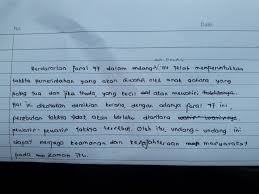 No
Date
Berdasarkan fasal 47 dalam undang-undang ini telah memperuntukkan
takhta pemerintahan yang akan diwarisi oleh anak gahara yang
paling tua dan jika tiada, yang kecil akan mewarisi takhtanya.
Hal ini dikatakan demikian kerana, dengan adanya fasal 47 ini,
perebutan takhta tidak akan berlaku diantara
pewaris-pewaris takhta tersebut. Oleh itu, undang-undang ini
dapat menjaga keamanan dan kesejahteraan masyarakat
pada zaman itu.